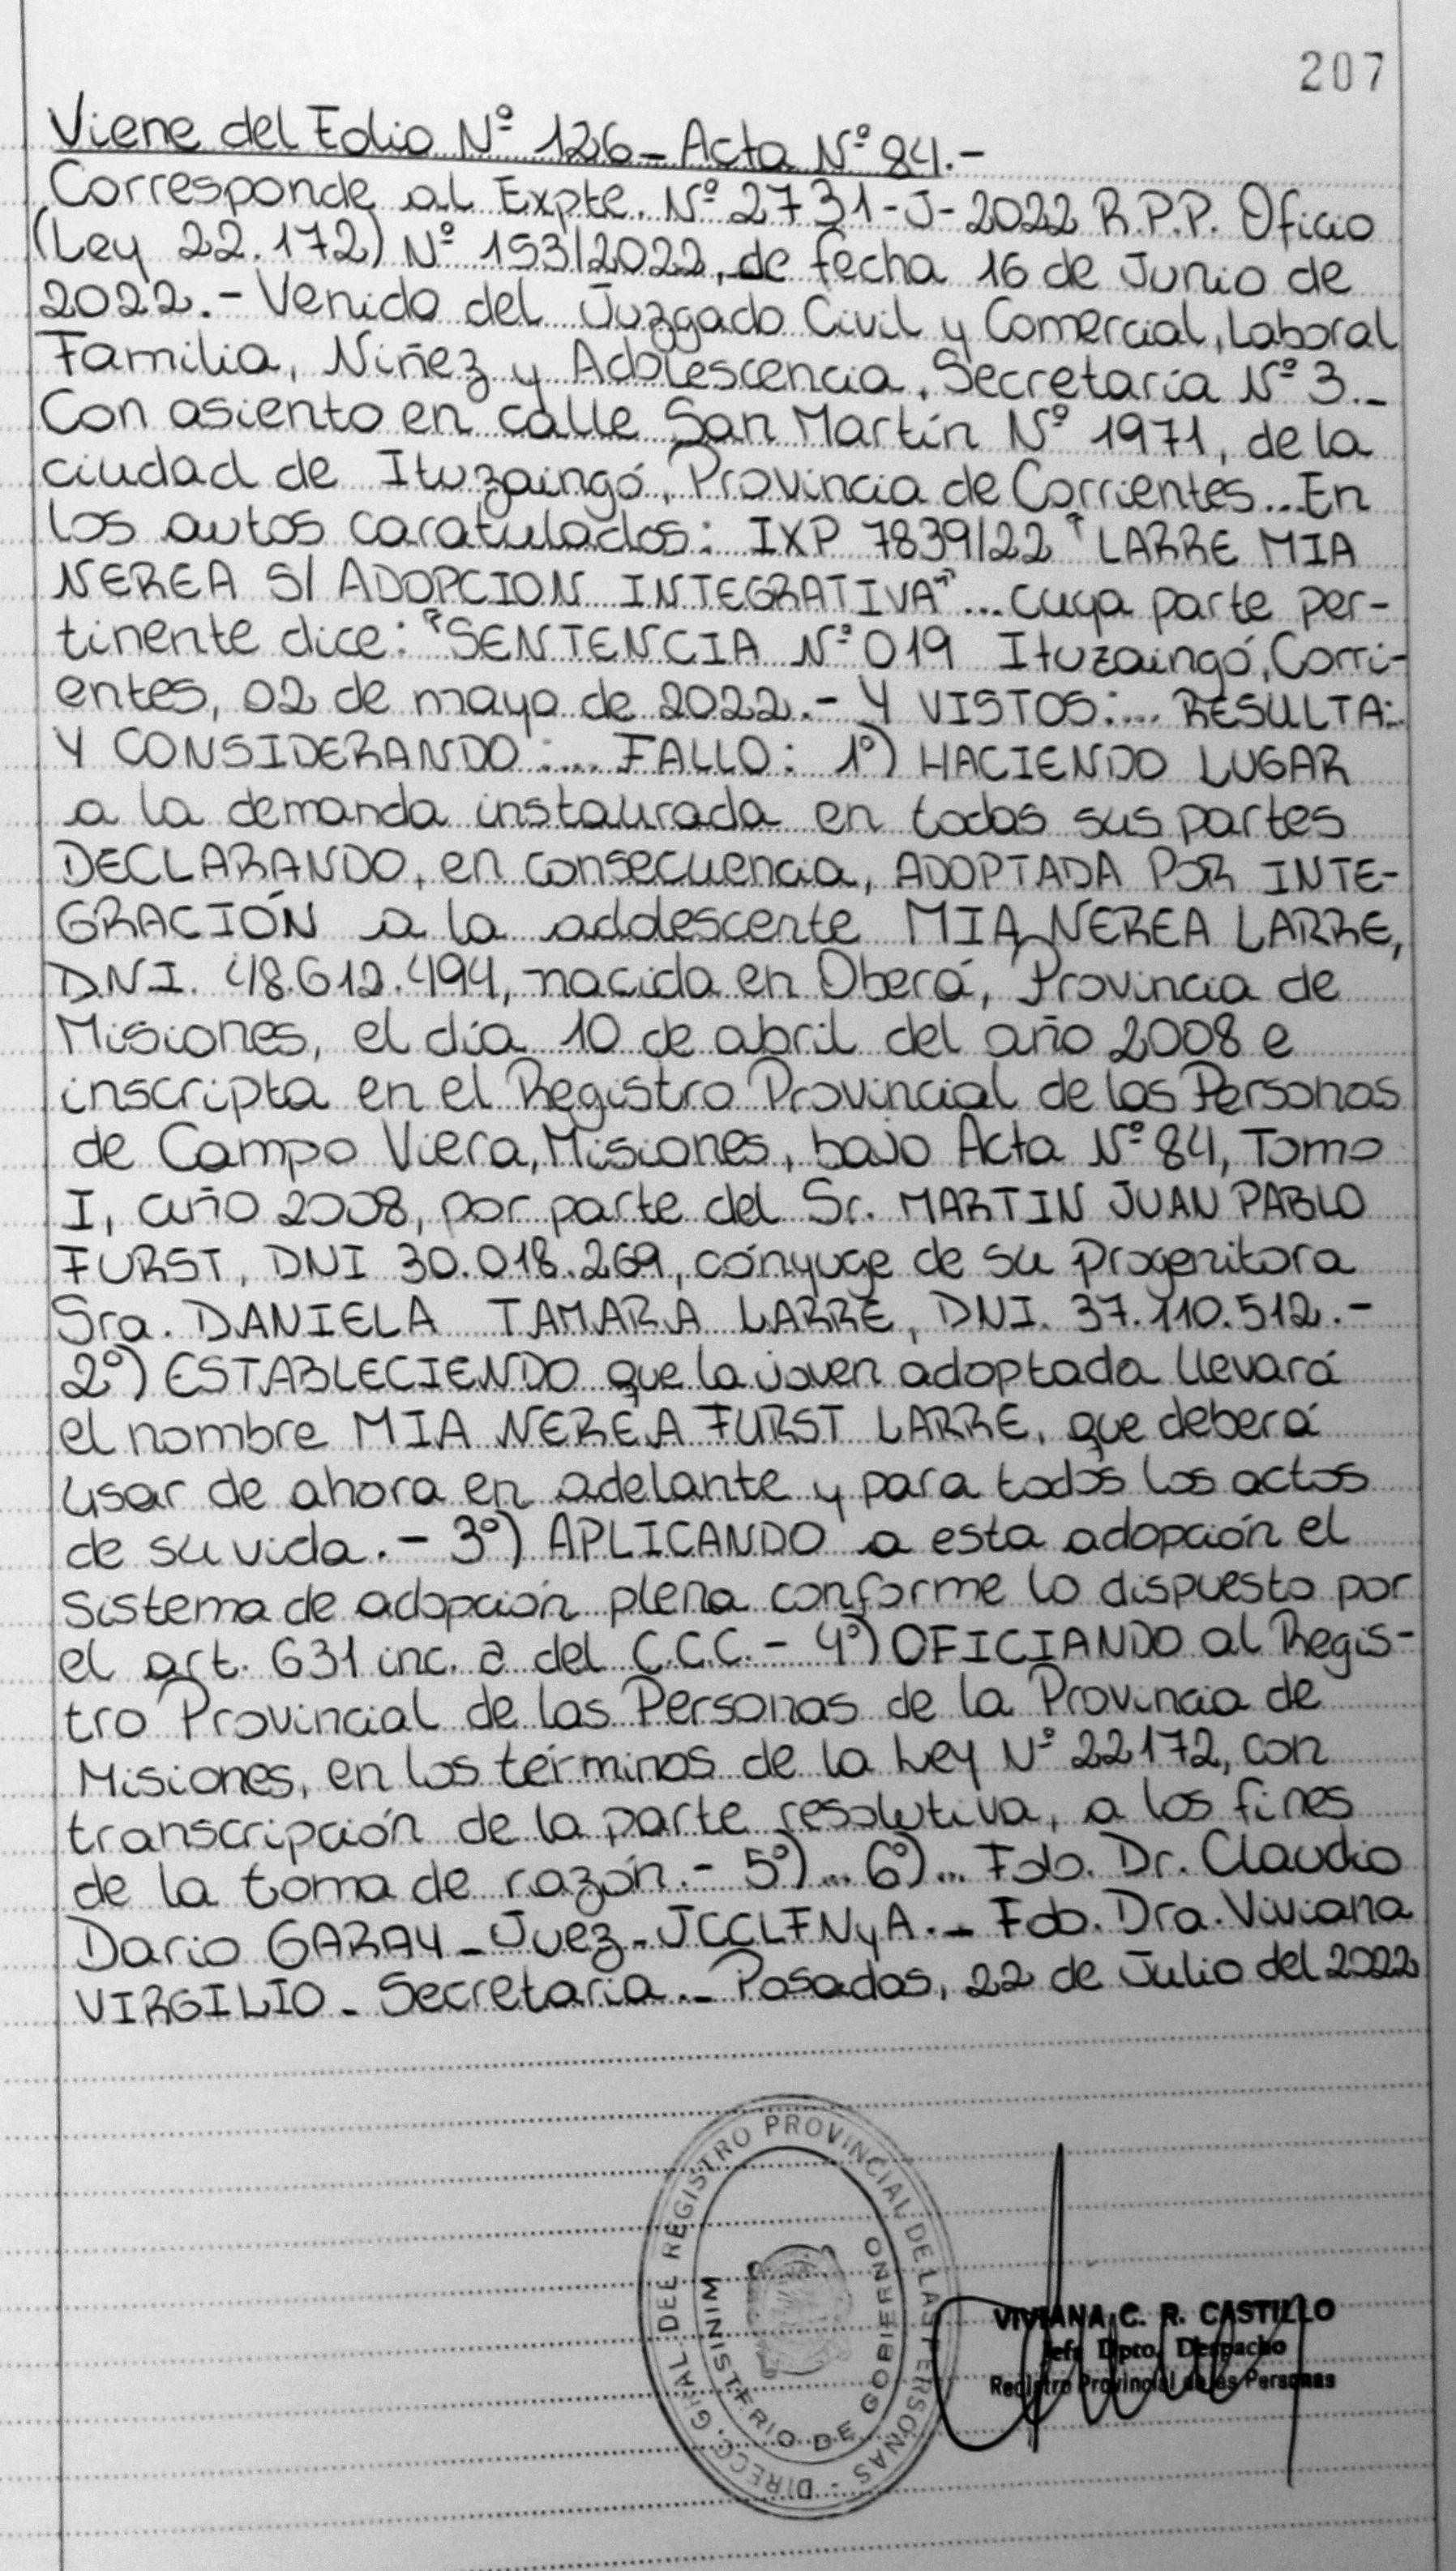 207
Viene del Folio Nº 126 - Acta Nº 84.-
Corresponde al Expte. Nº 2731-J-2022 R.P.P. Oficio
(Ley 22.172) Nº 153/2022, de fecha 16 de Junio de
2022.- Venido del Juzgado Civil y Comercial, Laboral
Familia, Niñez y Adolescencia, Secretaría Nº 3.-
Con asiento en calle San Martín Nº 1971, de la
ciudad de Ituzaingó, Provincia de Corrientes...En
los autos caratulados: IXP 7839/22 "LARRE MIA
NEREA S/ ADOPCION INTEGRATIVA"... cuya parte per-
tinente dice: "SENTENCIA Nº 019 Ituzaingó, Corri-
entes, 02 de mayo de 2022.- Y VISTOS:... RESULTA:..
Y CONSIDERANDO:.... FALLO: 1º) HACIENDO LUGAR
a la demanda instaurada en todas sus partes
DECLARANDO, en consecuencia, ADOPTADA POR INTE-
GRACIÓN a la adolescente MIA NEREA LARRE,
D.N.I. 48.612.494, nacida en Oberá, Provincia de
Misiones, el día 10 de abril del año 2008 e
inscripta en el Registro Provincial de las Personas
de Campo Viera, Misiones, bajo Acta Nº 84, Tomo
I, año 2008, por parte del Sr. MARTIN JUAN PABLO
FURST, DNI 30.018.269, cónyuge de su progenitora
Sra. DANIELA TAMARA LARRE, DNI. 37.110.512.-
2º) ESTABLECIENDO que la joven adoptada llevará
el nombre MIA NEREA FURST LARRE, que deberá
usar de ahora en adelante y para todos los actos
de su vida.- 3º) APLICANDO a esta adopción el
sistema de adopción plena conforme lo dispuesto por
el art. 631 inc. a del C.C.C.- 4º) OFICIANDO al Regis-
tro Provincial de las Personas de la Provincia de
Misiones, en los términos de la Ley Nº 22172, con
transcripción de la parte resolutiva, a los fines
de la toma de razón.- 5º)... 6º)... Fdo. Dr. Claudio
Dario GARAY - Juez - JCCLFNyA.- Fdo. Dra. Viviana
VIRGILIO - Secretaria.- Posadas, 22 de Julio del 2022
DIRECC. GRAL. DEL REGISTRO PROVINCIAL DE LAS PERSONAS -
MINISTERIO DE GOBIERNO
VIVIANA C. R. CASTILLO
Jefe Dpto. Despacho
Registro Provincial de las Personas